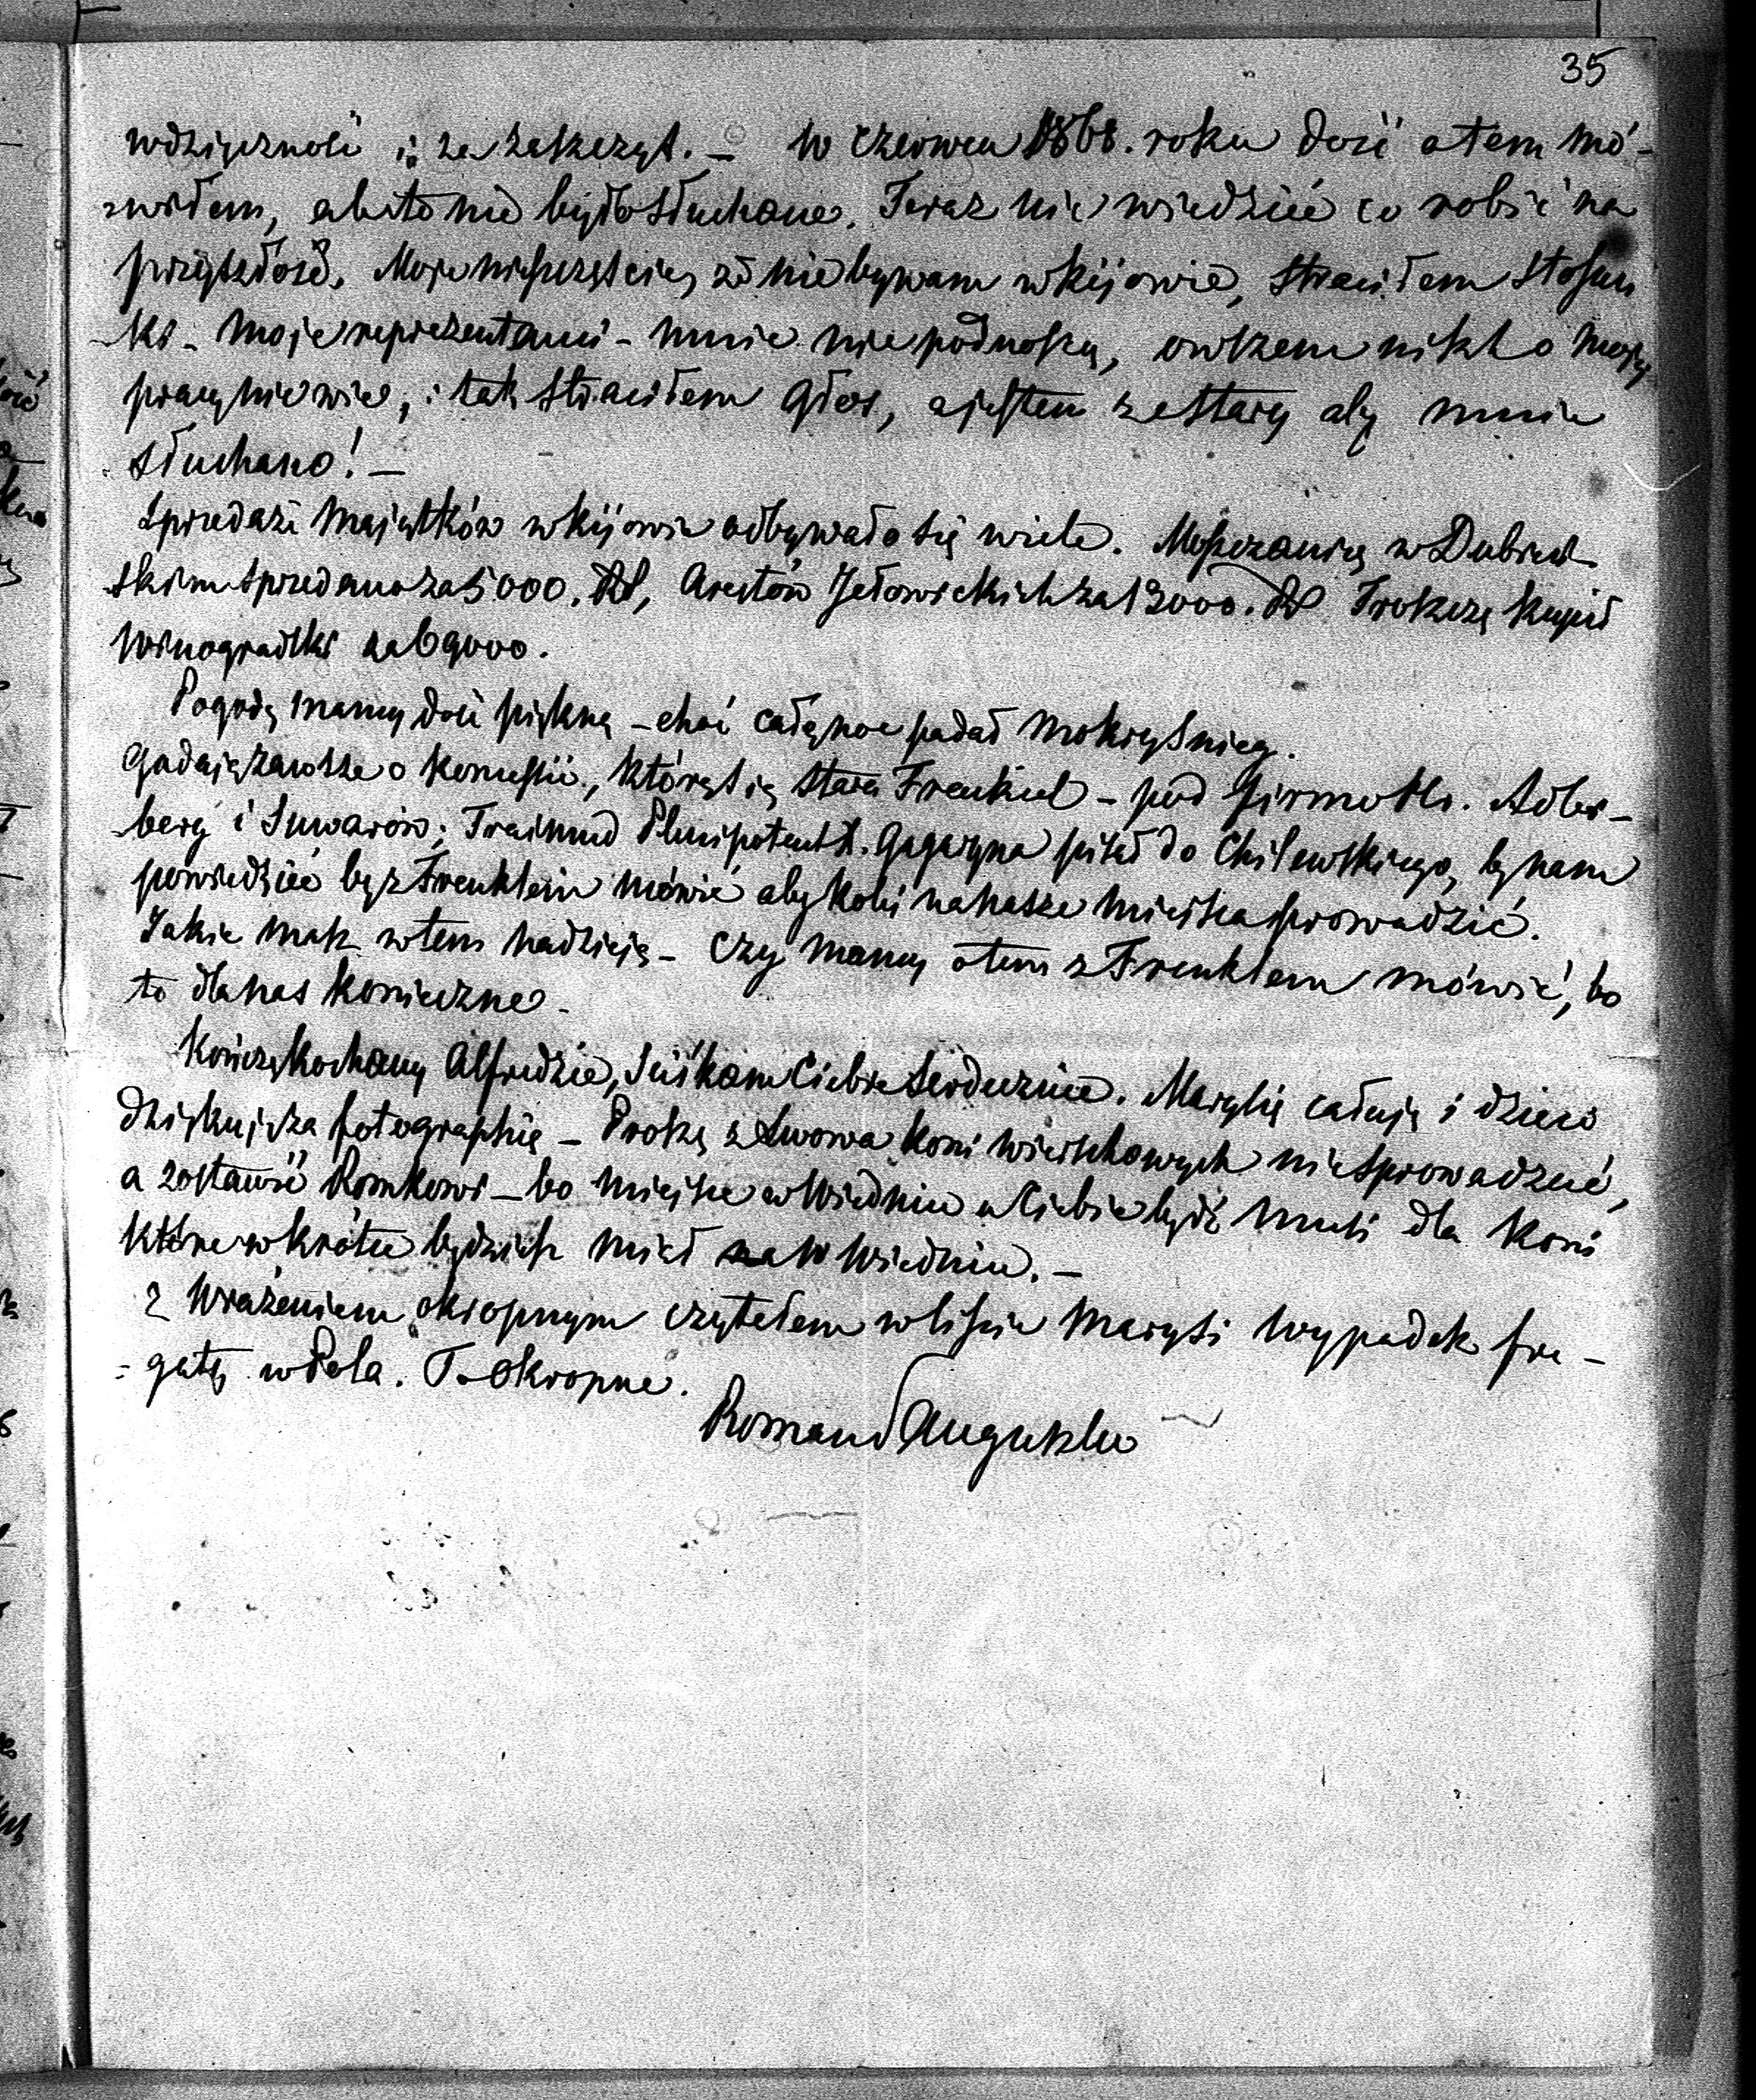 35
wdzięczność i za zaszczyt. – W Czerwcu 1868. roku dość otem mó-
wiłem, ale to nie było słuchane. Teraz nie wiedzieć co robić na
przyszłość. Moje nieszczęście, że nie bywam w Kijowie, straciłem stosun
ki – moje reprezentanci – mnie nie podnoszą, owszem nikt o mojej
pracy nie wie, i tak straciłem głos, a jestem za stary aby mnie
słuchano! –
Sprzedaż majątków w Kijowie odbywało się wiele. w Dubień-
skim sprzedano za 5000. RS, Arestów Jełowickich za 13000. RS kupił
Winogradki za 69000.
Pogodę mamy dość piękną – choć całą noc padał mokry śnieg.
Gadają zawsze o koncesii, którą się stara Frenkiel – pod firmo Adler-
berg i Suwarów; Plenipotent X. Gagaryna pisał do Chilewskiego, by nam
powiedzieć by z Frenklem mówić aby kolej na nasze miejsca prowadzić.
Jakie masz w tem nadzieję – Czy mamy otem z Frenklem mówić, bo
to dla nas konieczne –
Kończę kochany Alfredzie, Ściskam Ciebie serdecznie. Marylię całuję i dzieci
dziękuję za fotographię – Proszę z Lwowa koni wierzchowych nie sprowadzać,
a zostawić Romkowi – bo miejsce w Wiedniu u Ciebie być musi dla koni
które wkrótce będziesz miał w Wiedniu. –
Z wrażeniem okropnym czytałem w liście Marysi wypadek fre-
gaty w Pola. To okropne.
Roman Sanguszko